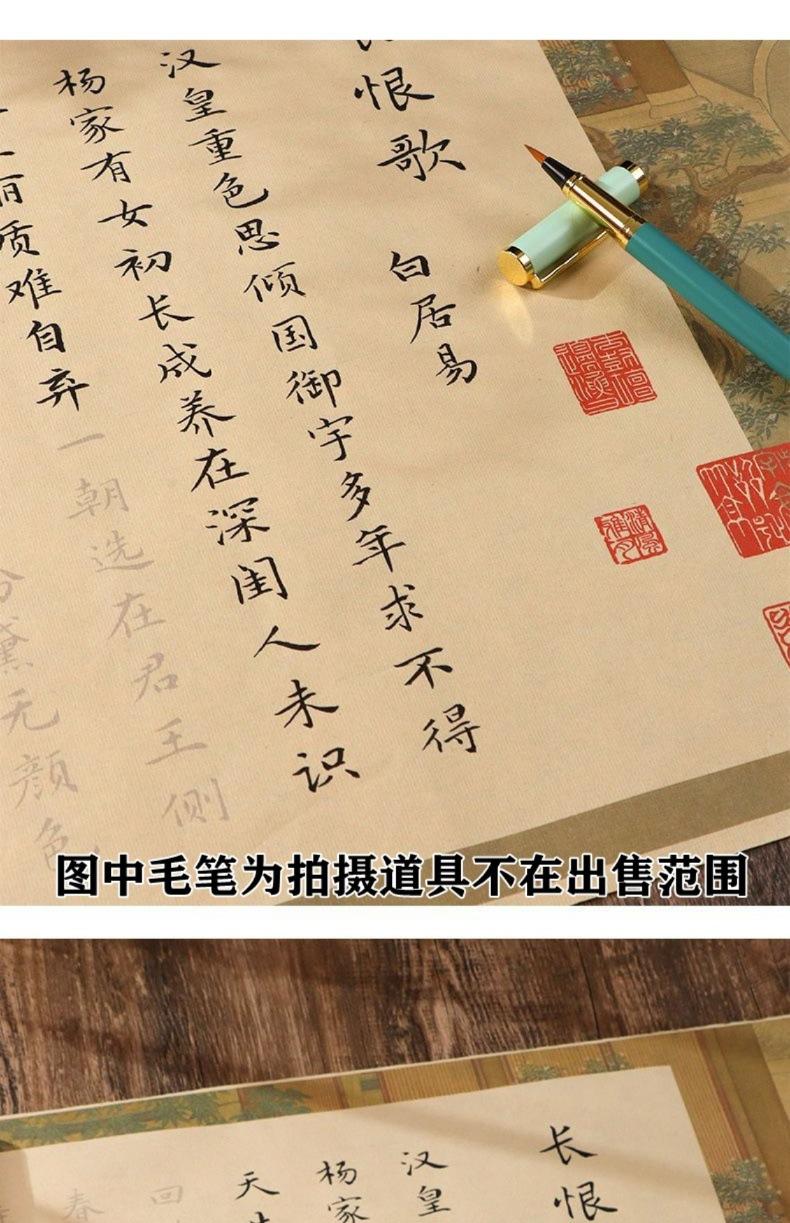 恨歌
白居易
汉皇重色思倾国御宇多年求不得
杨家有女初长成养在深闺人未识
丽质难自弃
一朝选在君王侧
粉黛无颜色
图中毛笔为拍摄道具不在出售范围
长恨
汉皇
杨家
天生
回
春